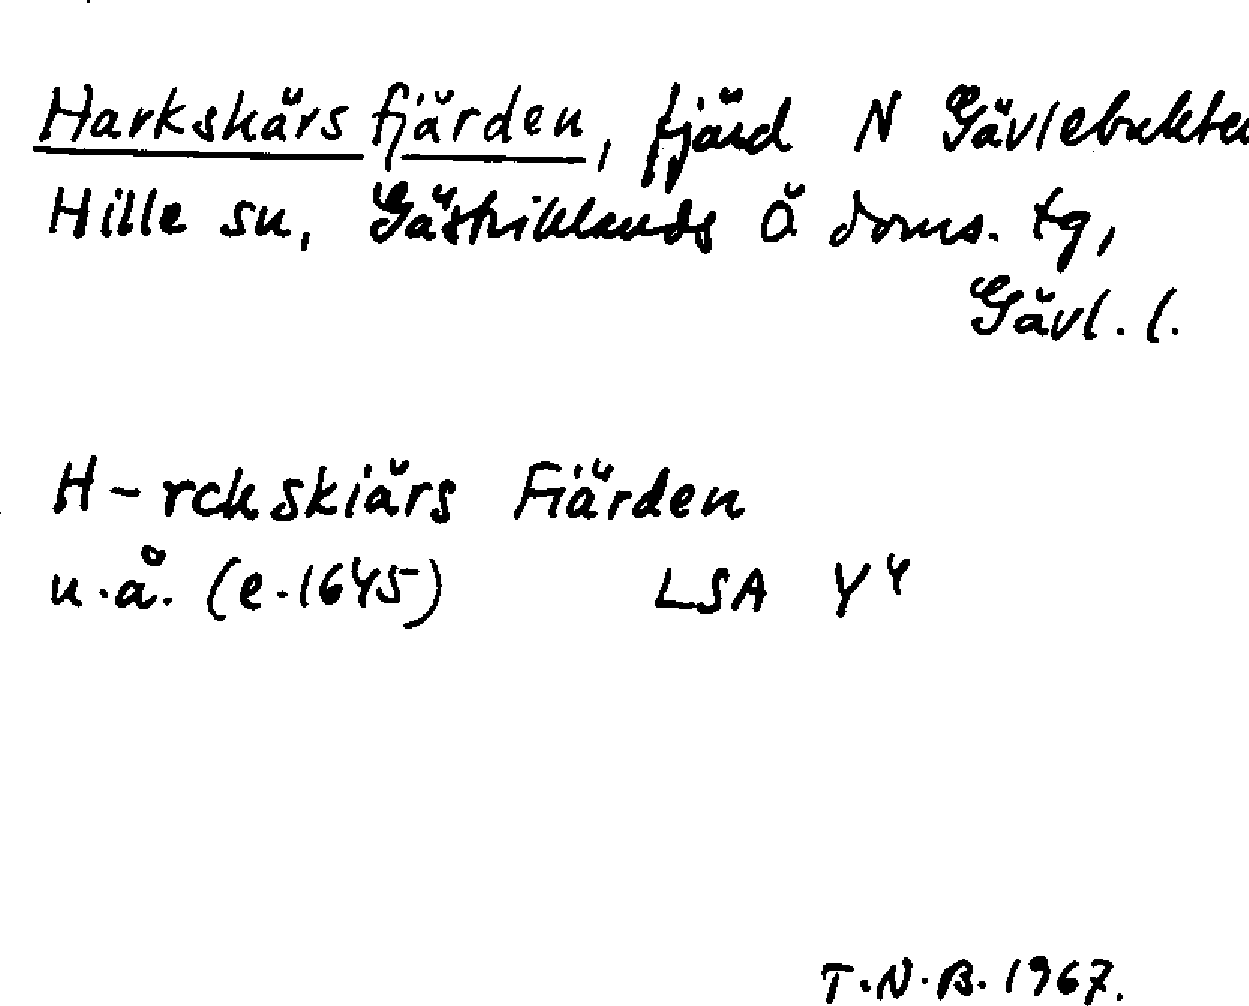 Harkskärsfjärden, fjärd N Gävlebukten
Hille sn, Gästriklands Ö doms. tg,
Gävl. l.
H-rckskiärs Fiärden
u.å. (e.1645) LSA Y4
T.N.B. 1967.